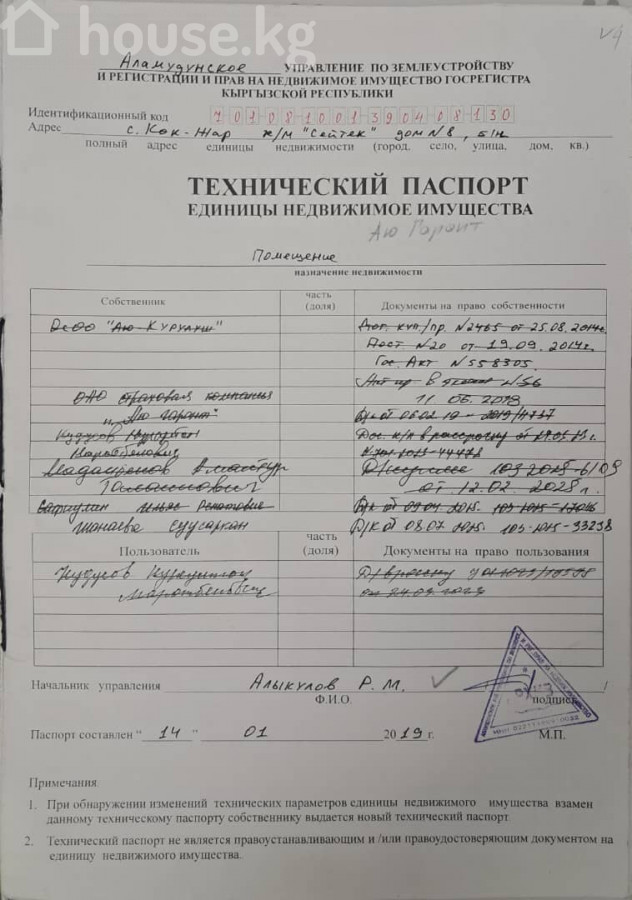 house.kg
v4
Аламудунское УПРАВЛЕНИЕ ПО ЗЕМЛЕУСТРОЙСТВУ
И РЕГИСТРАЦИИ И ПРАВ НА НЕДВИЖИМОЕ ИМУЩЕСТВО ГОСРЕГИСТРА
КЫРГЫЗСКОЙ РЕСПУБЛИКИ
Идентификационный код 7 01 08 1001 3904 08 130
Адрес с. Кок-Жар ж/м "Сейтек" дом №8, б/н
полный адрес единицы недвижимости (город, село, улица, дом, кв.)
ТЕХНИЧЕСКИЙ ПАСПОРТ
ЕДИНИЦЫ НЕДВИЖИМОЕ ИМУЩЕСТВА
Аю Гарант
Помещение
назначение недвижимости
Собственник часть (доля) Документы на право собственности
ОсОО "Аю Курулуш" Дог. куп/пр. №2465 от 25.08.2014г.
Пост №20 от 19.09.2014г.
Гос. Акт №558305
Акт пр в №56
ОАО страховая компания 11 06. 2018
"Аю гарант"
Кудусов
Маратбекович
Талантович от 12.02. 2025 г.
Шонаева Суусаркан Д/К от 08.07 2025. 103-1025-33238
Пользователь часть (доля) Документы на право пользования
Кудусов
Маратбекович
Начальник управления Алыкулов Р. М. /
Ф.И.О. подпись
Паспорт составлен “ 14 ” 01 2019 г. М.П.
Примечания
1. При обнаружении изменений технических параметров единицы недвижимого имущества взамен
данному техническому паспорту собственнику выдается новый технический паспорт.
2. Технический паспорт не является правоустанавливающим и /или правоудостоверяющим документом на
единицу недвижимого имущества.